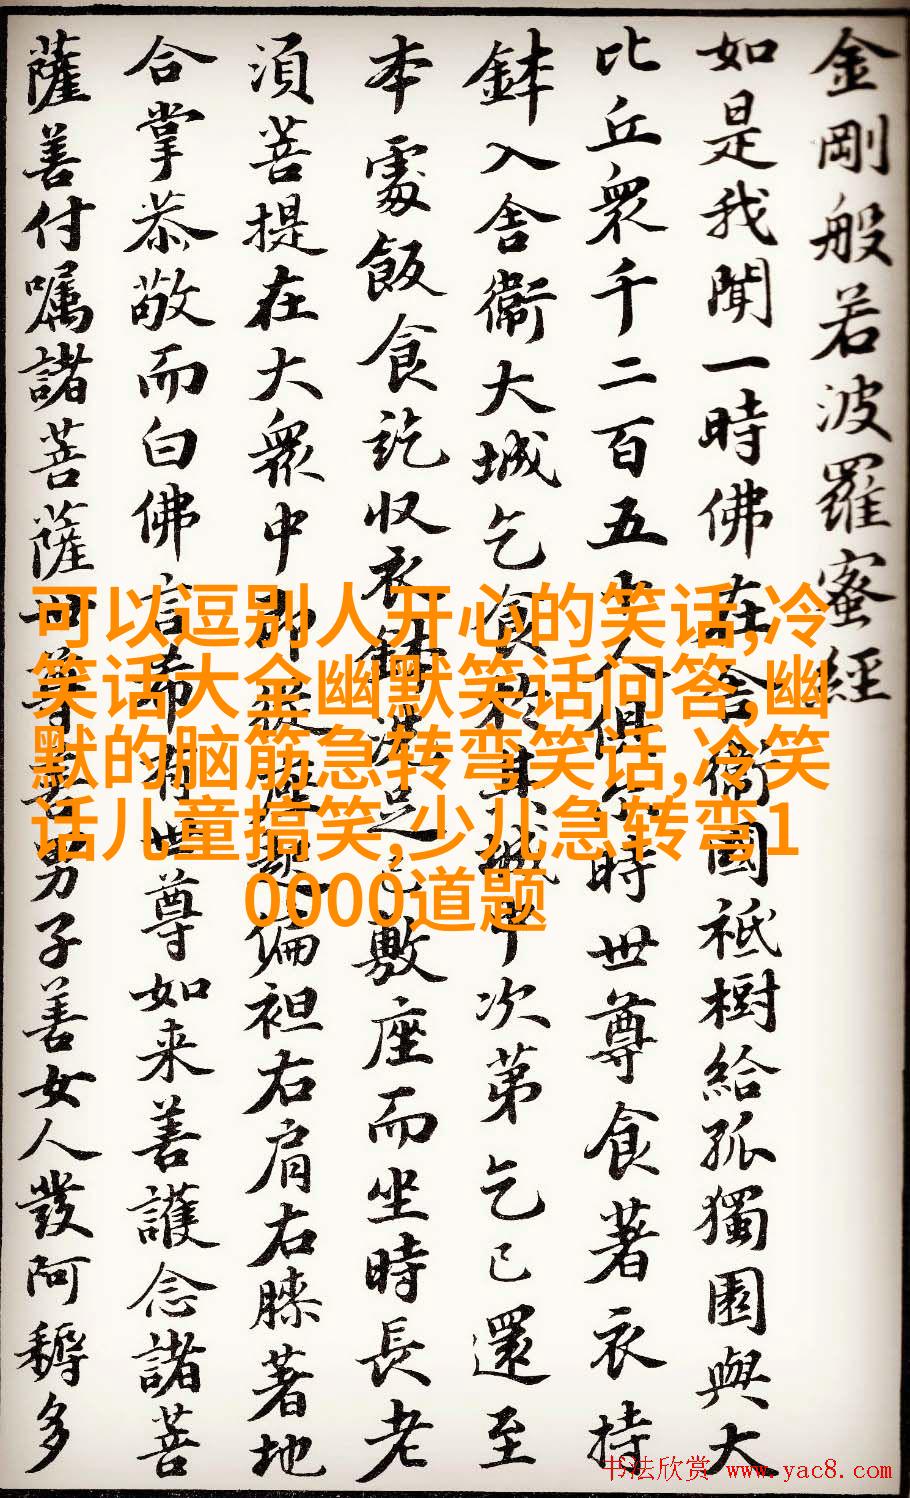 金剛般若波羅蜜經
如是我聞一時佛在舍衞國祇樹給孤獨園與大
比丘衆千二百五十人俱尒時世尊食著衣持
鉢入舍衞大城乞食於其城中次第乞已還至
本處飯食訖收衣鉢洗足已敷座而坐時長老
須菩提在大衆中即從座起偏袒右肩右膝著地
合掌恭敬而白佛言希有世尊如来善護念諸菩
薩善付嘱諸菩薩世尊善男子善女人發阿耨多
可以逗别人开心的笑话,冷
笑话大全幽默笑话问答,幽
默的脑筋急转弯笑话,冷笑
话儿童搞笑,少儿急转弯1
0000道题
书法欣赏 www.yac8.com